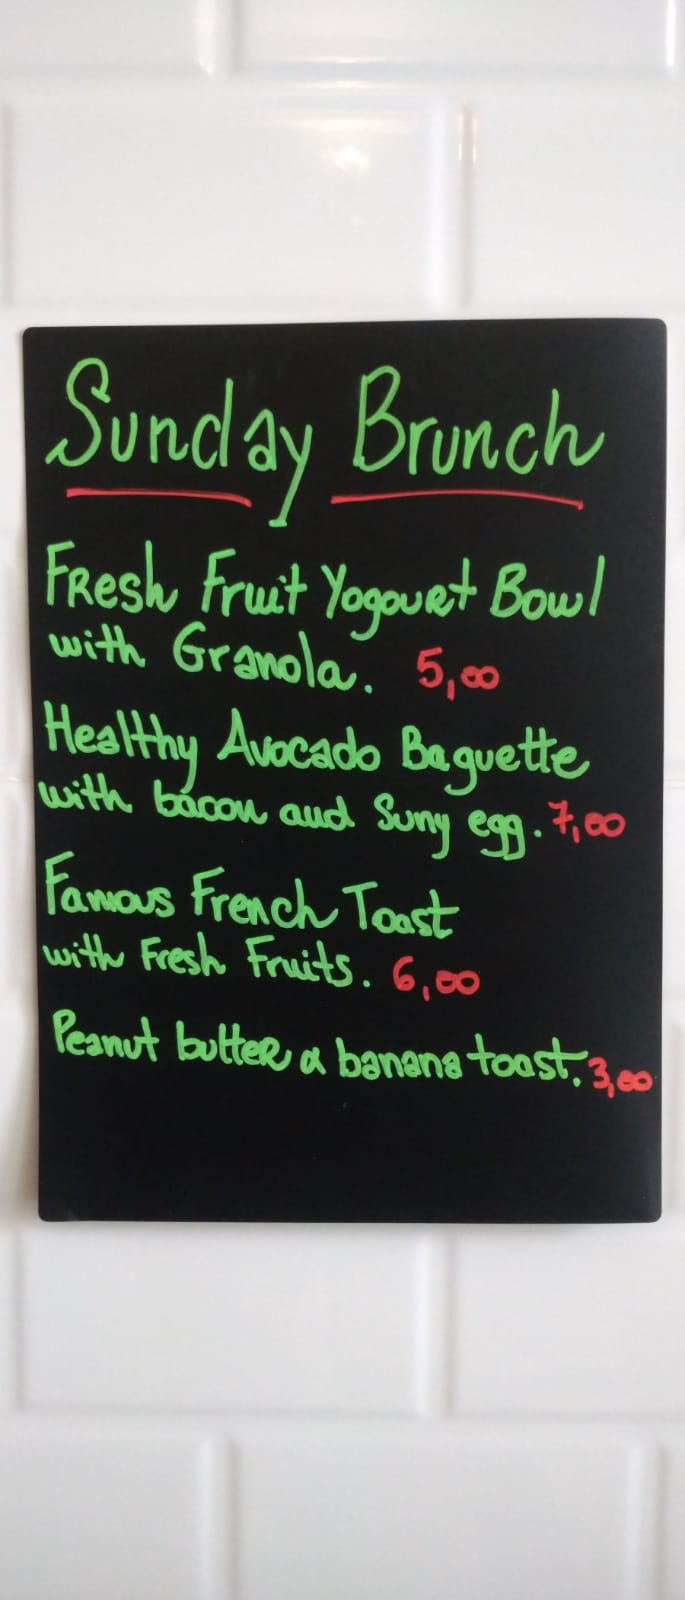 Sunday Brunch
Fresh Fruit Yogourt Bowl
with Granola. 5,00
Healthy Avocado Baguette
with bacon and Suny egg. 7,00
Famous French Toast
with Fresh Fruits. 6,00
Peanut butter & banana toast. 3,00